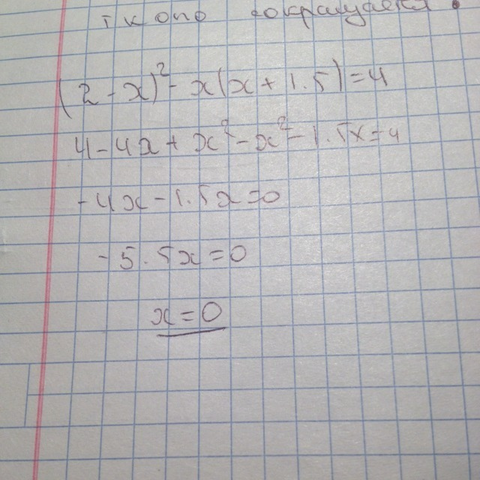 т к оно сокращается.
(2 - x)² - x(x + 1.5) = 4
4 - 4x + x² - x² - 1.5x = 4
- 4x - 1.5x = 0
- 5.5x = 0
x = 0